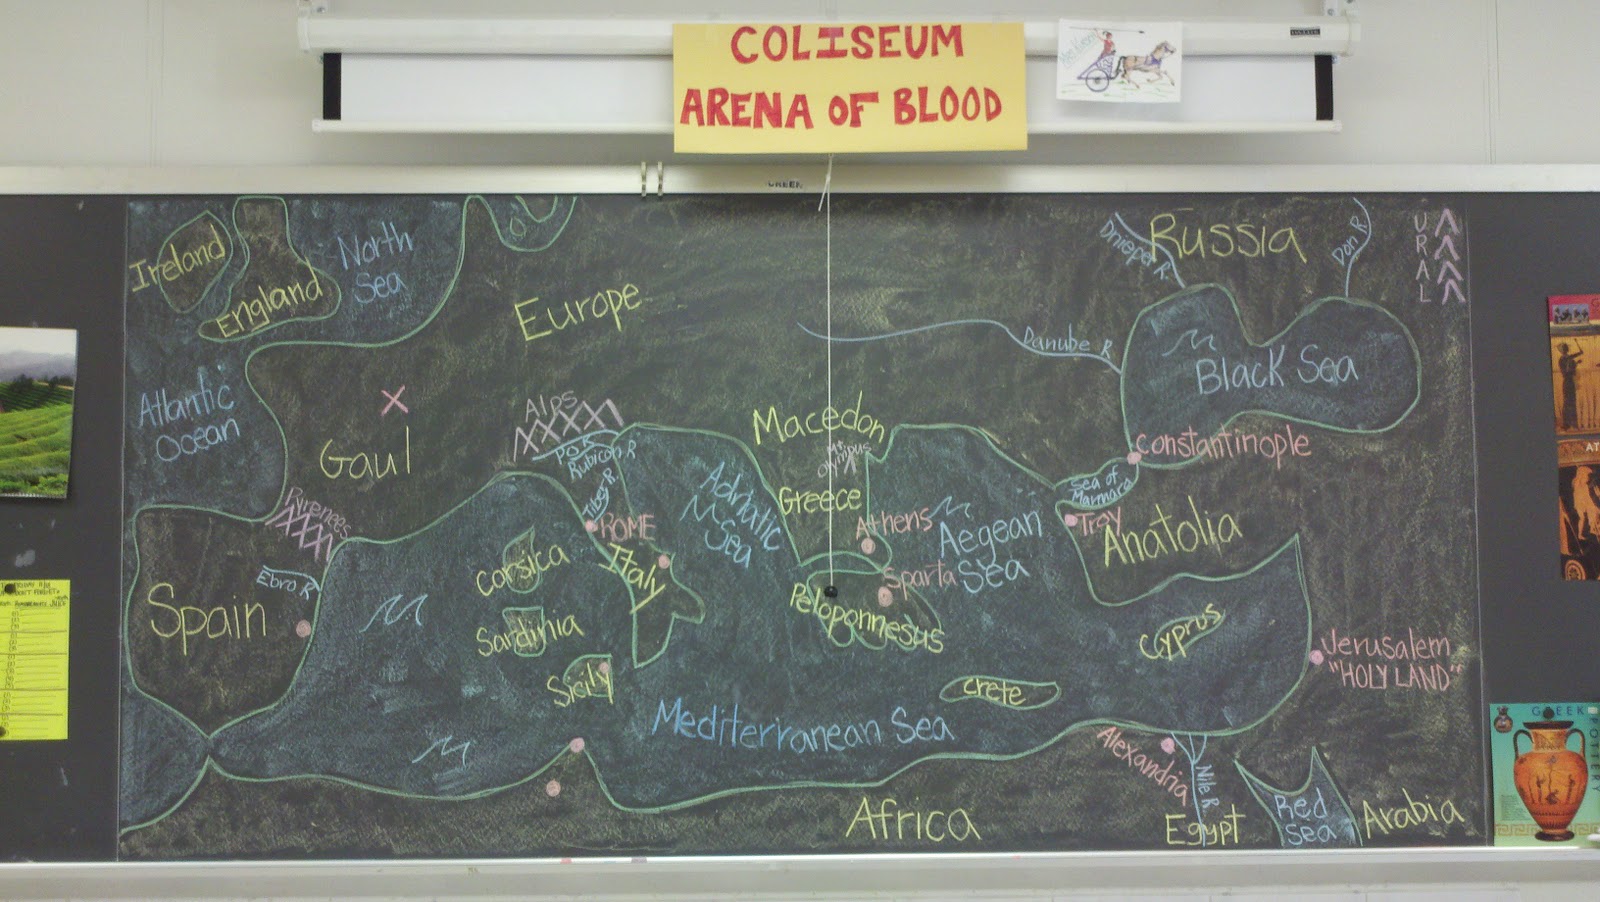 COLISEUM
ARENA OF BLOOD
GREEK
Ireland
England
North
Sea
Europe
Dnieper R.
Russia
Don R
URAL
Atlantic
Ocean
Danube R
Black Sea
Gaul
Alps
Po R
Rubicon R
Tiber R.
Macedon
Mt
Olympus
Constantinople
Sea of
Marmara
Adriatic
Sea
Greece
Athens
Aegean
Sea
Troy
Anatolia
Pyrenees
Ebro R
ROME
Italy
Corsica
Sparta
Spain
Sardinia
Peloponnesus
Cyprus
Jerusalem
"HOLY LAND"
Sicily
Crete
Mediterranean Sea
Alexandria
Nile R
Africa
Egypt
Red
Sea
Arabia
GREEK
POTTERY